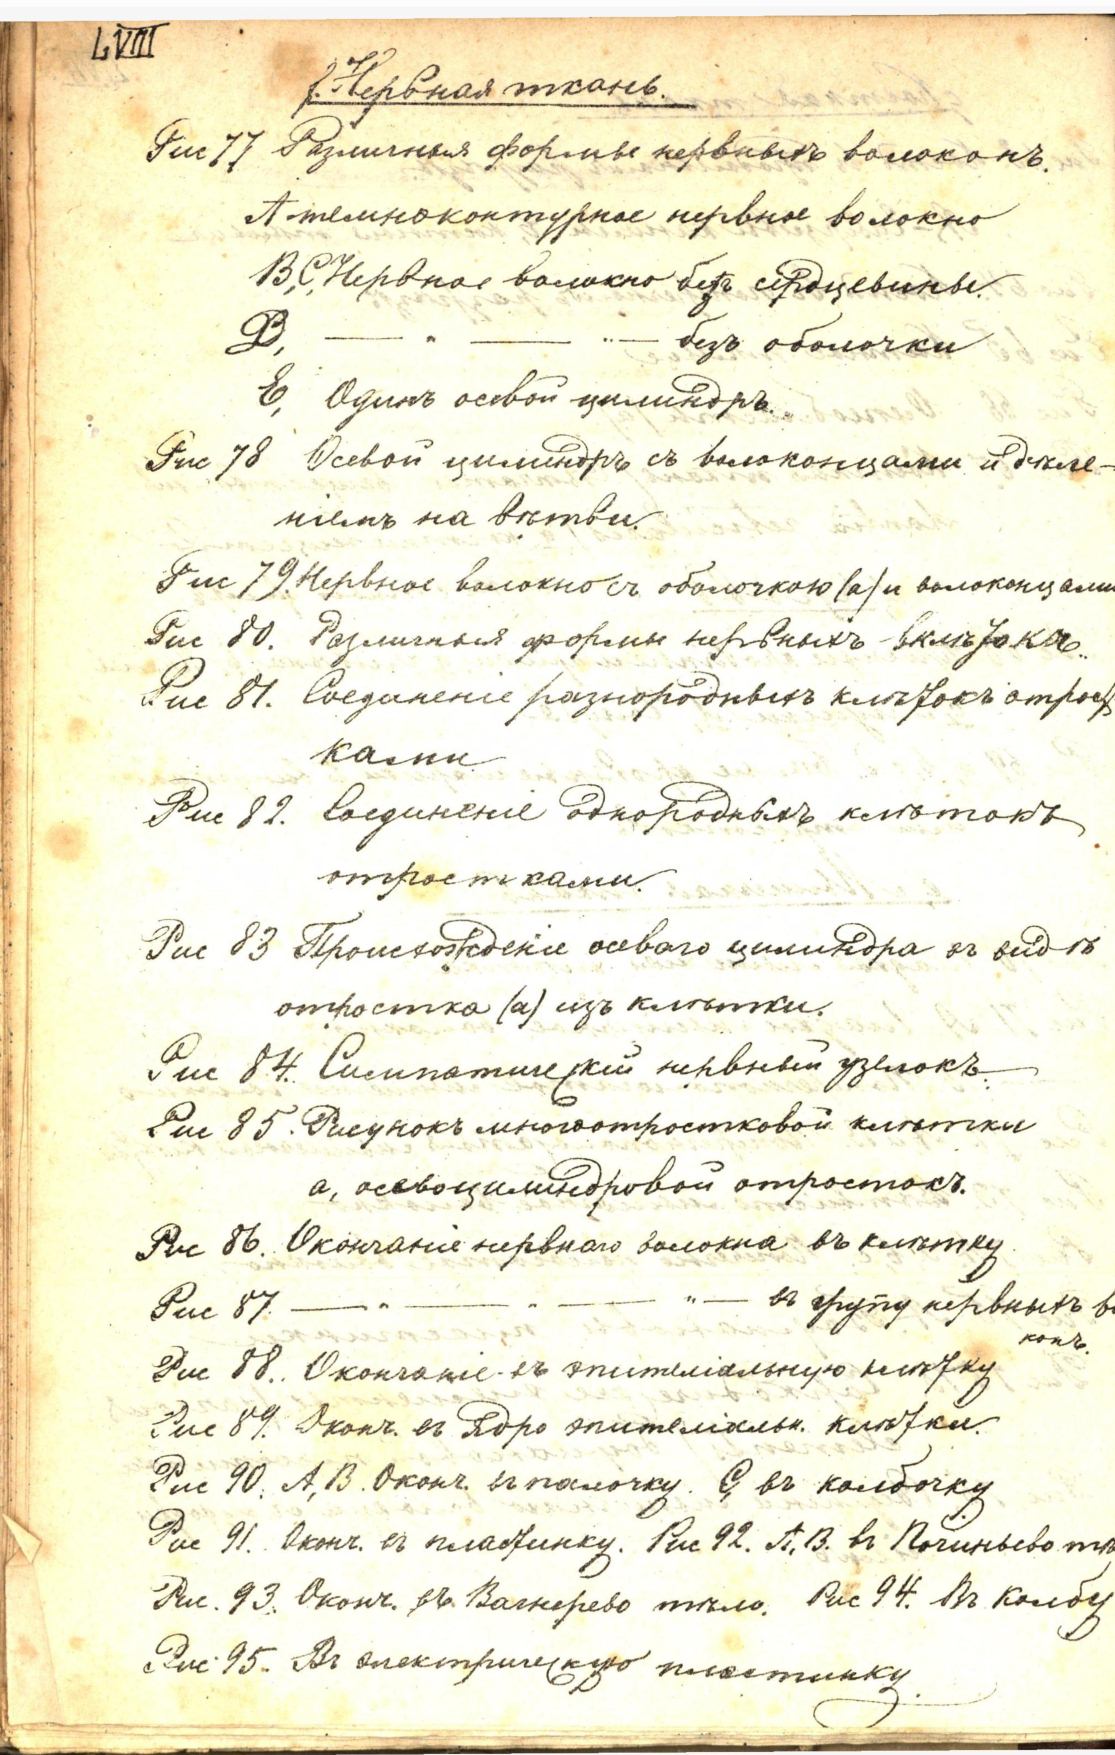 LVIII
f. Нервная ткань.
Рис 77 Различныя формы нервныхъ волоконъ.
А темноконтурное нервное волокно
В, С, Нервное волокно безъ сердцевины.
D, — " — " — безъ оболочки
Е, Одинъ осевой цилиндръ.
Рис 78 Осевой цилиндръ съ волоконцами и деле-
ніемъ на вѣтви.
Рис 79. Нервное волокно съ оболочкою (а) и волоконцами
Рис 80. Различныя формы нервныхъ клѣтокъ.
Рис 81. Соединеніе разнородныхъ клѣтокъ отрост
ками
Рис 82. Соединеніе однородныхъ клѣтокъ
отростками.
Рис 83 Происхожденіе осеваго цилиндра въ видѣ
отростка (а) изъ клѣтки.
Рис 84. Симпатическій нервный узелокъ.
Рис 85. Рисунокъ многоотростковой клѣтки
а, осевоцилиндровой отростокъ.
Рис 86. Окончаніе нервнаго волокна въ клѣтку
Рис 87. — " — " — " — въ групу нервныхъ во
конъ.
Рис 88. Окончаніе въ эпителіальную клѣтку
Рис 89. Оконч. въ Ядро эпителіальн. клѣтки.
Рис 90. А, В. Оконч. въ палочку. С, въ колбочку
Рис 91. Оконч. въ пластинку. Рис 92. А, В. въ Починьево тѣ
Рис. 93. Оконч. въ Вагнерево тѣло. Рис 94. Въ колбу
Рис 95. Въ электрическую пластинку.